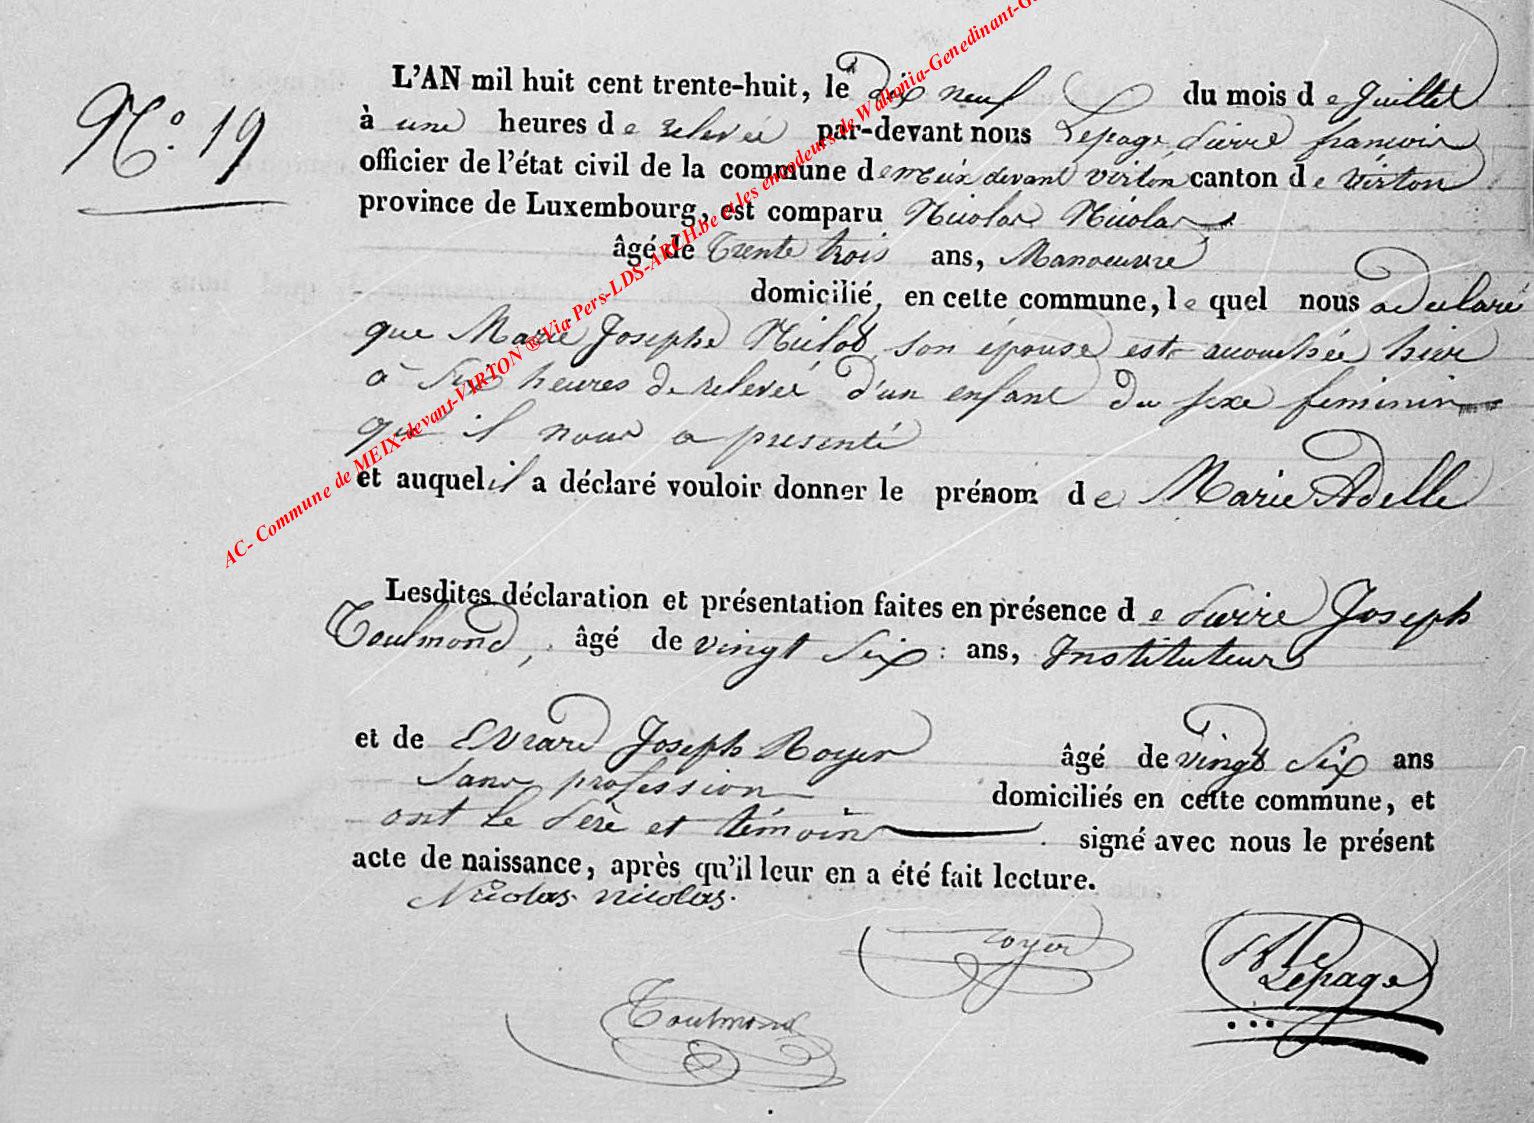 N.º 19
L'AN mil huit cent trente-huit, le Dix neuf du mois de Juillet
à une heures de relevée par-devant nous Lepage Pierre françois
officier de l'état civil de la commune de meix devant virton canton de Virton
province de Luxembourg, est comparu Nicolas Nicolas
âgé de Trente trois ans, Manoeuvre
domicilié, en cette commune, le quel nous a déclaré
que Marie Josephe son épouse est accouchée hier
à Six heures de relevée d'un enfant du sexe feminin
qu'il nous a presenté
et auquel il a déclaré vouloir donner le prénom de Marie Adelle
Lesdites déclaration et présentation faites en présence de Pierre Joseph
Toulmond, âgé de vingt Six ans, Instituteur
et de Evrard Joseph Royer âgé de vingt Six ans
Sans profession domiciliés en cette commune, et
ont le Père et témoins signé avec nous le présent
acte de naissance, après qu'il leur en a été fait lecture.
Nicolas nicolas.
royer
Lepage
Toulmond
AC- Commune de MEIX-devant-VIRTON ® Via Pers-LDS-ARCH.be et les encodeurs de Wallonia-Genedinant-G